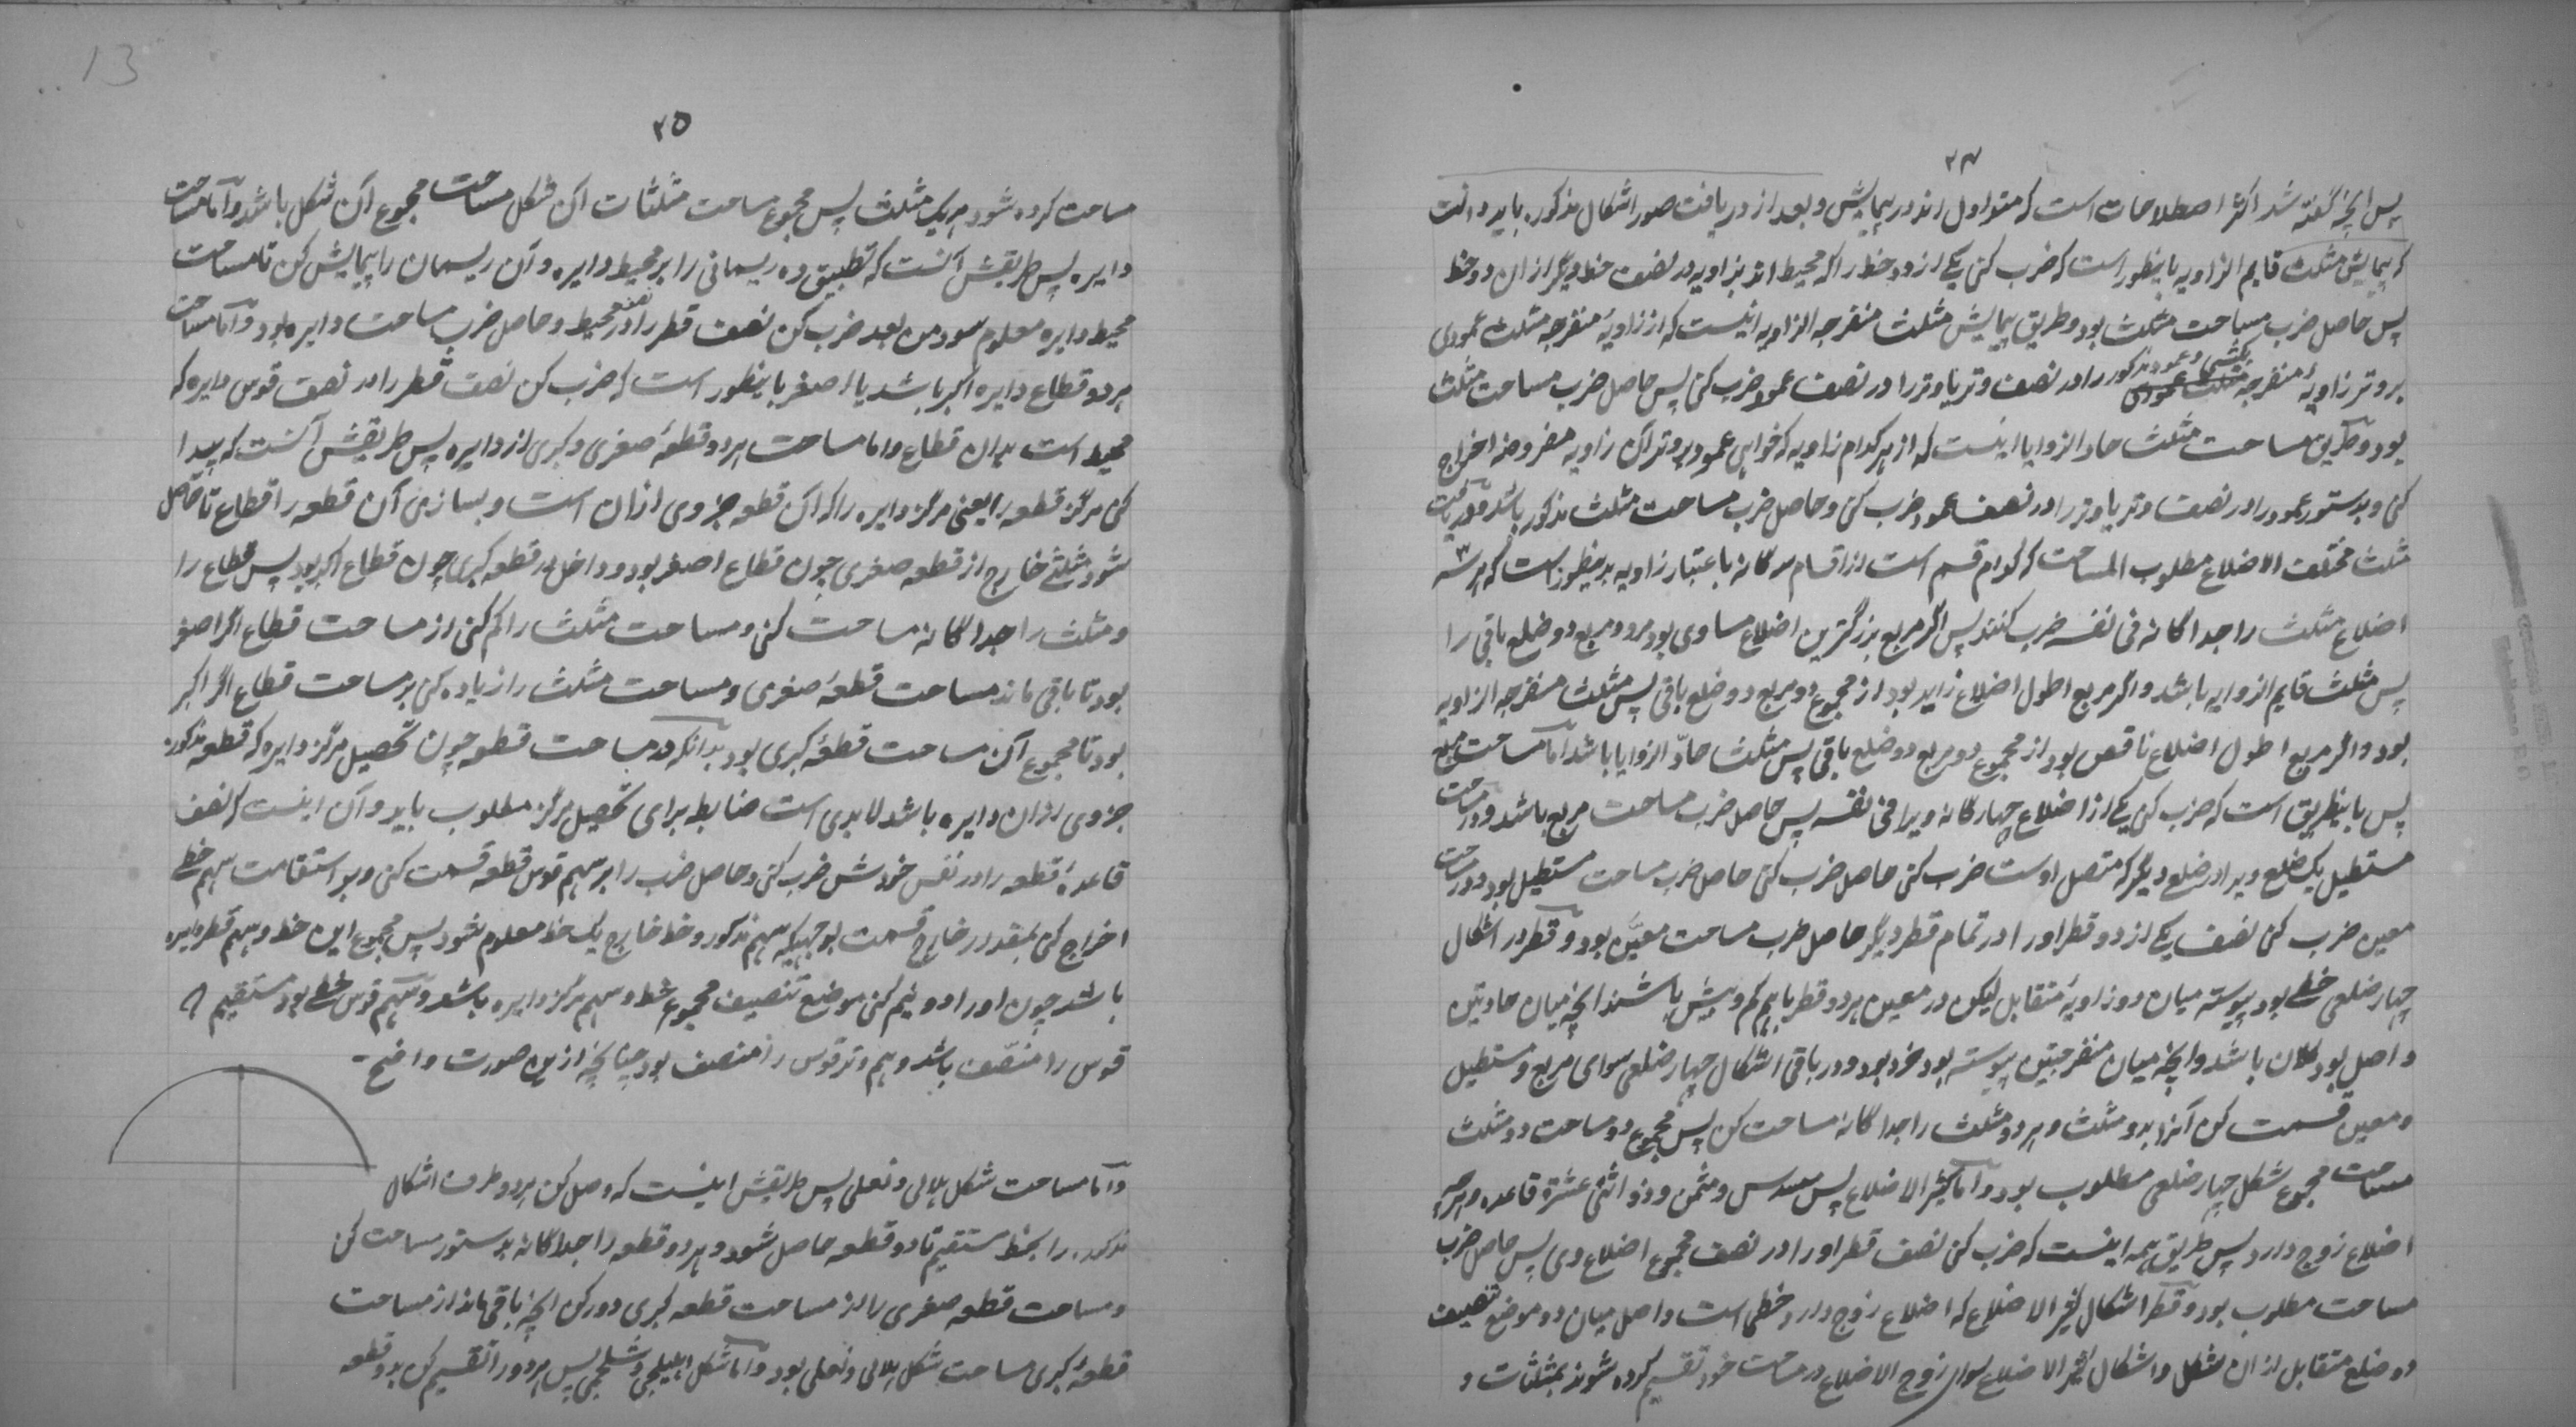 ۲۴
پس آنچه گفته شد اکثر اصطلاحات است که متداول اند در پیمایش و بعد از دریافت صور اشکال مذکوره باید دانست
که پیمایش مثلث قایم الزاویه باینطور است که ضرب کنی یکے از دو خط را که محیط اند بزاویه در نصف خط دیگر ازان دو خط
پس حاصل ضرب مساحت مثلث بود و طریق پیمایش مثلث منفرجه الزاویه اینست که از زاویهٔ منفرجه مثلث عمودی
بر وتر زاویهٔ منفرجه کشی و عمود مذکور را در نصف وتر یا وتر را در نصف عمود ضرب کنی پس حاصل ضرب مساحت مثلث
بود و طریق مساحت مثلث حاد الزوایا اینست که از هر کدام زاویه که خواهی عمود بر وتر آن زاویه مفروضه اخراج
کنی و بدستور عمود را در نصف وتر یا وتر را در نصف عمود ضرب کنی و حاصل ضرب مساحت مثلث مذکور باشد و دریافت
مثلث مختلف الاضلاع مطلوب المساحت که کدام قسم است از اقسام سه گانه باعتبار زاویه بدینطور است که هر سه
اضلاع مثلث را جداگانه فی نفسه ضرب کنند پس اگر مربع بزرگترین اضلاع مساوی بود مر دو مربع دو ضلع باقی را
پس مثلث قایم الزاویه باشد و اگر مربع اطول اضلاع زاید بود از مجموع دو مربع دو ضلع باقی پس مثلث منفرجه الزاویه
بود و اگر مربع اطول اضلاع ناقص بود از مجموع دو مربع دو ضلع باقی پس مثلث حادّ الزوایا باشد اما مساحت مربع
پس باینطریق است که ضرب کنی یکے از اضلاع چهارگانه ویرا فی نفسه پس حاصل ضرب مساحت مربع باشد و در مساحت
مستطیل یک ضلع ویرا در ضلع دیگر که متصل اوست ضرب کنی حاصل ضرب مساحت مستطیل بود و در مساحت
معین ضرب کنی نصف یکے از دو قطر او را در تمام قطر دیگر حاصل ضرب مساحت معیّن بود و قطر در اشکال
چهار ضلعی خطے بود پیوسته میان دو زاویهٔ متقابل لیکن در معین هر دو قطر باهم کم و بیش باشند آنچه میان حادتین
واصل بود کلان باشد و آنچه میان منفرجتین پیوسته بود خرد بود و در باقی اشکال چهار ضلعی سوای مربع و مستطیل
و معین قسمت کن آنرا بدو مثلث و هر دو مثلث را جداگانه مساحت کن پس مجموع دو مساحت دو مثلث
مساحت مجموع شکل چهار ضلعی مطلوب بود و اما کثیر الاضلاع پس مسدس و مثمن و ذو اثنی عشرة قاعده و هر چه
اضلاع زوج دارد پس طریق همه اینست که ضرب کن نصف قطر او را در نصف مجموع اضلاع وی پس حاصل ضرب
مساحت مطلوب بود و قطر اشکال کثیر الاضلاع که اضلاع زوج دارد خطی است واصل میان دو موضع تنصیف
دو ضلع متقابل ازان شکل و اشکال کثیر الاضلاع سوای زوج الاضلاع در مساحت خود تقسیم کرده شوند بمثلثات و
۲۵
مساحت کرده شود هر یک مثلث پس مجموع مساحت مثلثات آن شکل مساحت مجموع آن شکل باشد و اما مساحت
دایره پس طریقش آنست که تطبیق ده ریسمانی را بر محیط دایره و آن ریسمان را پیمایش کن تا مساحت
محیط دایره معلوم شود من بعد ضرب کن نصف قطر را در نصف محیط و حاصل ضرب مساحت دایره بود و اما مساحت
هر دو قطاع دایره اکبر باشد یا اصغر باینطور است که ضرب کن نصف قطر را در نصف قوس دایره که
محیط است بدان قطاع و اما مساحت هر دو قطعهٔ صغری و کبری از دایره پس طریقش آنست که پیدا
کنی مرکز قطعه را یعنی مرکز دایره را که آن قطعه جزوی ازان است و بسازی آن قطعه را قطاع تا حاصل
شود مثلثے خارج از قطعه صغری چون قطاع اصغر بود و داخل در قطعه کبری چون قطاع اکبر بود پس قطاع را
و مثلث را جداگانه مساحت کنی و مساحت مثلث را کم کنی از مساحت قطاع اگر اصغر
بود تا باقی ماند مساحت قطعهٔ صغری و مساحت مثلث را زیاده کنی بر مساحت قطاع اگر اکبر
بود تا مجموع آن مساحت قطعهٔ کبری بود بدانکه در مساحت قطعه چون تحصیل مرکز دایره که قطعه مذکوره
جزوی ازان دایره باشد لابدی است ضابطه برای تحصیل مرکز مطلوب باید و آن اینست که نصف
قاعدهٔ قطعه را در نفس خودش ضرب کنی و حاصل ضرب را بر سهم قوس قطعه قسمت کنی و بر استقامت سهم خطے
اخراج کنی بمقدار خارج قسمت بوجهیکه سهم مذکور و خط خارج یک خط معلوم شود پس مجموع این خط و سهم قطر دایره
باشد چون او را دو نیم کنی موضع تنصیف مجموع خط و سهم مرکز دایره باشد و سهم قوس خطے بود مستقیم که
قوس را منصّف باشد و هم وتر قوس را منصف بود چنانچه ازین صورت واضح -
و اما مساحت شکل هلالی و نعلی پس طریقش اینست که وصل کن هر دو طرف اشکال
مذکوره را بخط مستقیم تا دو قطعه حاصل شود و هر دو قطعه را جداگانه بدستور مساحت کن
و مساحت قطعه صغری را از مساحت قطعه کبری دور کن آنچه باقی ماند از مساحت
قطعهٔ کبری مساحت شکل هلالی و نعلی بود و اما شکل اهلیلجی و شلجمی پس هر دو را تقسیم کن بدو قطعه
13